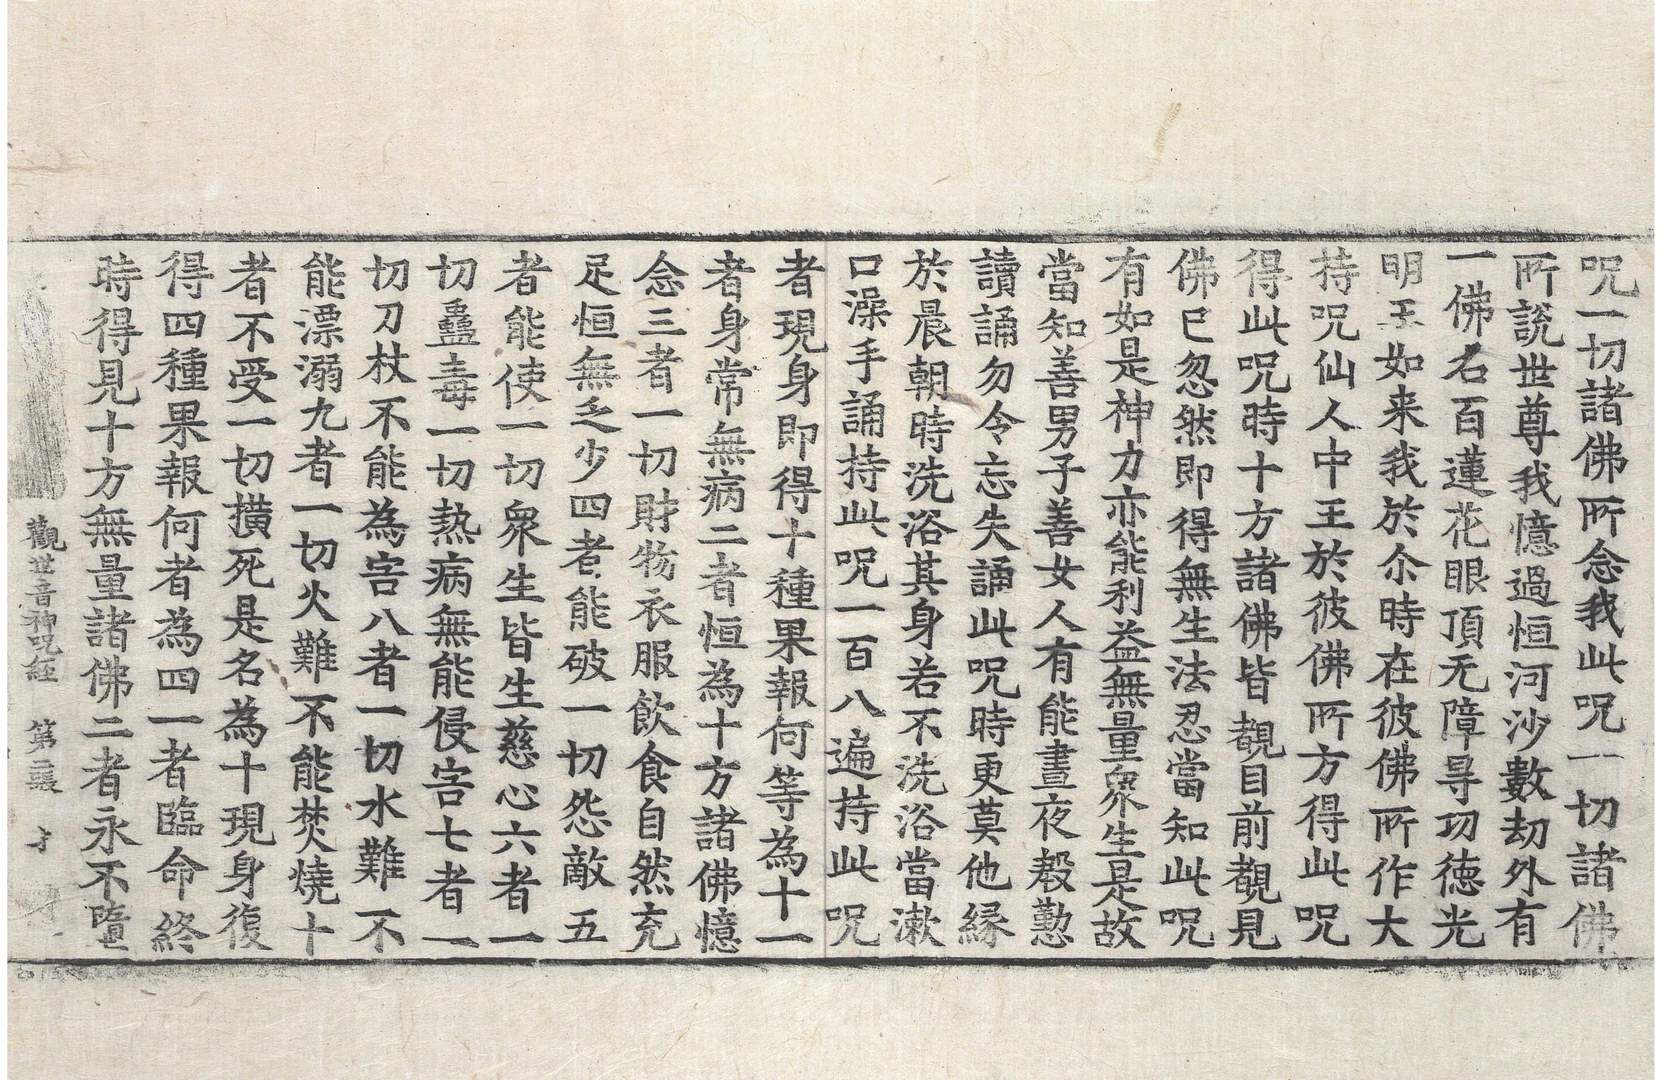 呪一切諸佛所念我此呪一切諸佛
所說世尊我憶過恒河沙數劫外有
一佛名百蓮花眼頂无障㝵功徳光
明王如来我於尒時在彼佛所作大
持呪仙人中王於彼佛所方得此呪
得此呪時十方諸佛皆覩目前覩見
佛已忽然即得無生法忍當知此呪
有如是神力亦能利益無量衆生是故
當知善男子善女人有能晝夜慇懃
讀誦勿令忘失誦此呪時更莫他縁
於晨朝時洗浴其身若不洗浴當漱
口澡手誦持此呪一百八遍持此呪
者現身即得十種果報何等為十一
者身常無病二者恒為十方諸佛憶
念三者一切財物衣服飲食自然充
足恒無乏少四者能破一切怨敵五
者能使一切衆生皆生慈心六者一
切蠱毒一切熱病無能侵害七者一
切刀杖不能為害八者一切水難不
能漂溺九者一切火難不能焚燒十
者不受一切撗死是名為十現身復
得四種果報何者為四一者臨命終
時得見十方無量諸佛二者永不墮
觀世音神呪經 第二張 才